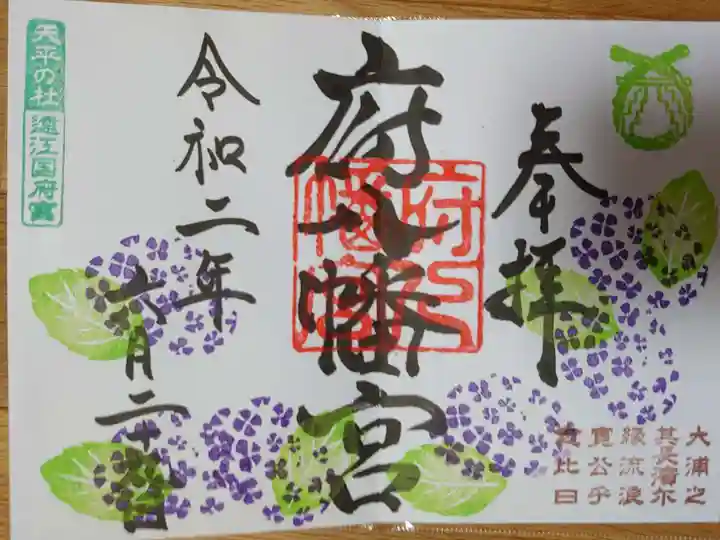 奉拝
府八幡宮
府八
幡宮
令和二年
六月二十八日
天平の杜
遠江国府宮
大浦之
其長濱尓
縁流浪
寛公乎